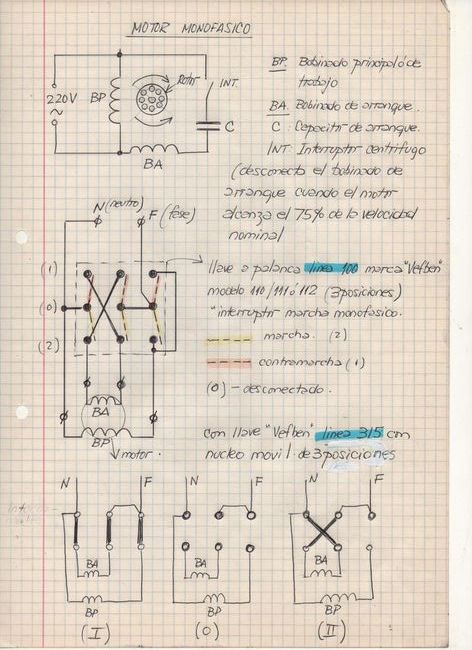 MOTOR MONOFASICO
BP. Bobinado principal ó de
trabajo
BA. Bobinado de arranque.
C : Capacitor de arranque.
INT. Interruptor centrífugo
(desconecta el bobinado de
arranque cuando el motor
alcanza el 75% de la velocidad
nominal
220V
~
BP
Rotor
INT.
C
BA
N (neutro)
F (fase)
(1)
(0)
(2)
BA
BP
motor.
llave a palanca linea 100 marca "Vefben"
modelo 110/111 ó 112 (3 posiciones)
"interruptor marcha monofasico.
marcha. (2)
contramarcha (1)
(0) - desconectado.
con llave "Vefben" linea 315 con
nucleo movil de 3 posiciones
N
F
BA
BP
(I)
N
F
BA
BP
(0)
N
F
BA
BP
(II)